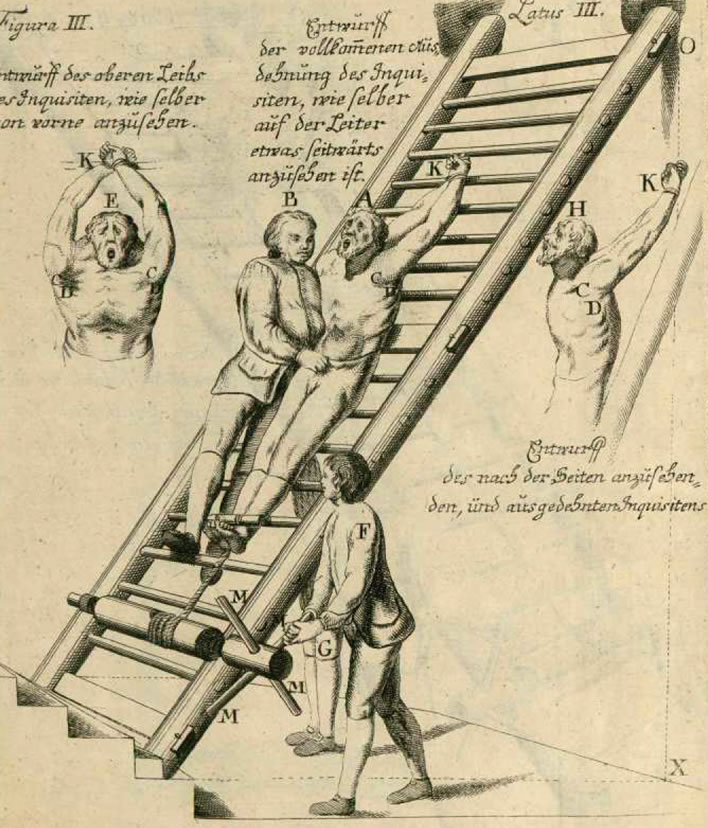 Figura III.
ntwurff des oberen Leibs
es Inquisiten, wie selber
on vorne anzusehen.
Entwurff
der vollkom̄enen Aus⸗
dehnung des Inqui⸗
siten, wie selber
auf der Leiter
etwas seitwärts
anzusehen ist.
Latus III.
O
K
E
C
D
C
D
B
A
K
C
D
H
K
C
D
Entwurff
des nach der Seiten anzusehen⸗
den, und ausgedehnten Inquisitens
F
G
M
M
M
X